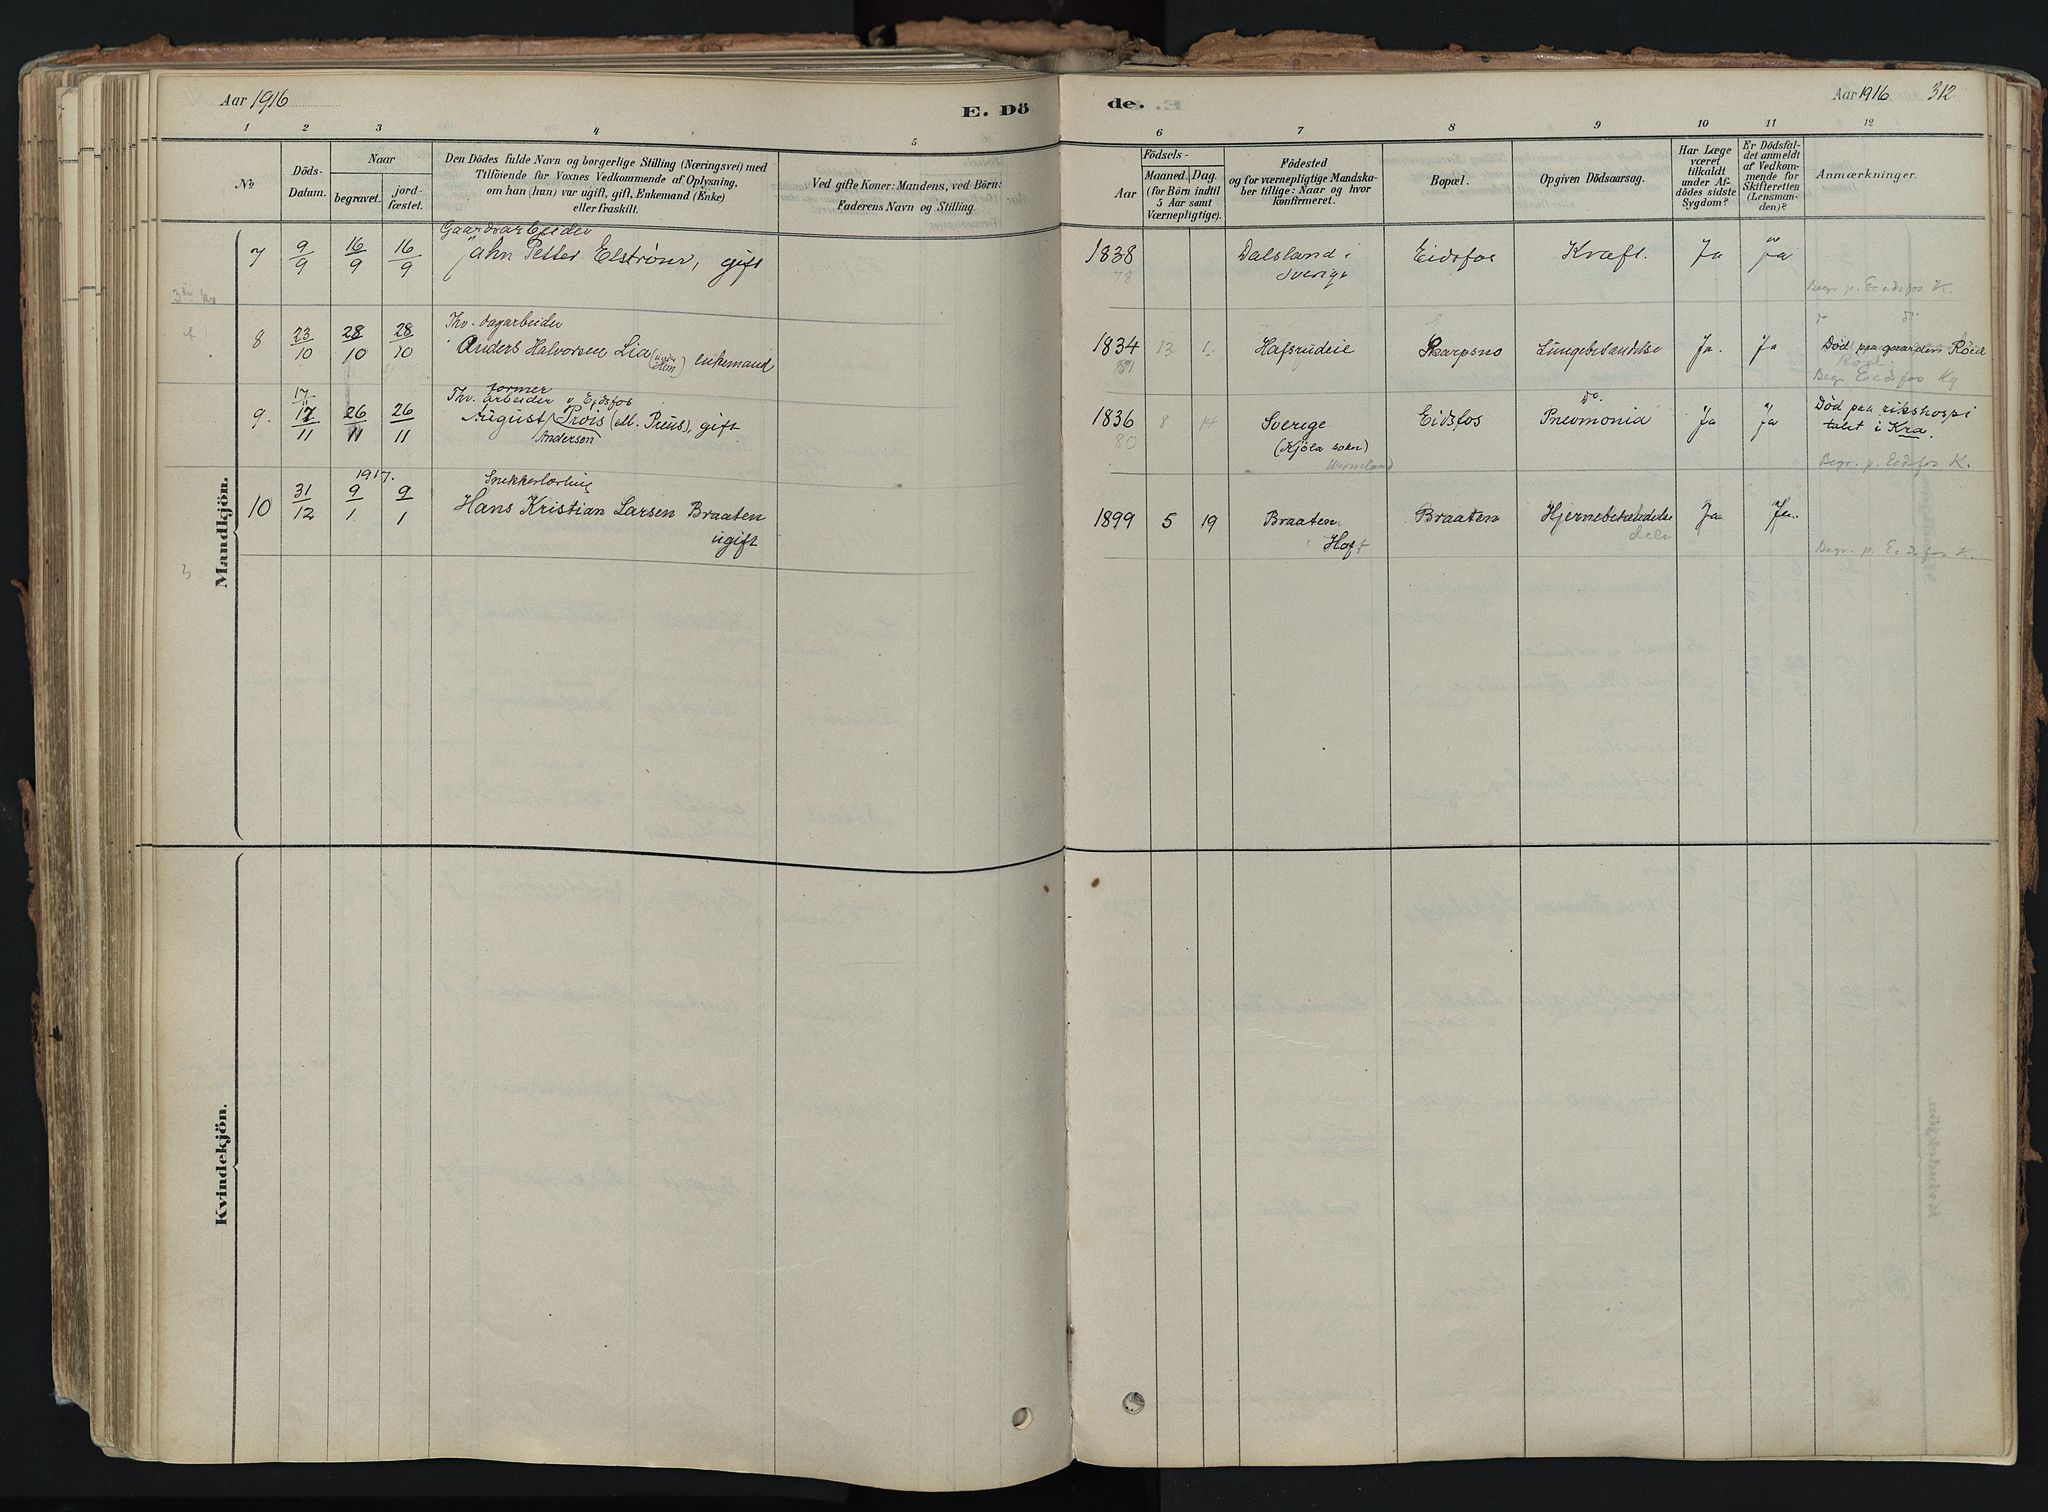 Aar 1916
E. Dö
de.
Aar 1916
312
1 2 3 4 5
6 7 8 9 10 11 12
No
Döds-
Datum.
Naar
begravet.
jord-
fæstet.
Den Dödes fulde Navn og borgerlige Stilling (Næringsvei) med
Tilföiende for Voxnes Vedkommende af Oplysning,
om han (hun) var ugift, gift, Enkemand (Enke)
eller fraskilt.
Ved gifte Koner: Mandens, ved Börn:
Faderens Navn og Stilling.
Födsels-
Aar
Maaned. Dag.
(for Börn indtil
5 Aar samt
Værnepligtige).
Födested
og for værnepligtige Mandska-
ber tillige: Naar og hvor
konfirmeret.
Bopæl.
Opgiven Dödsaarsag.
Har Læge
været
tilkaldt
under Af-
dödes sidste
Sygdom?
Er Dödsfal-
det anmeldt
af Vedkom-
mende for
Skifteretten
(Lensman-
den)?
Anmærkninger.
Mandkjön.
Gaardsarbeider
7 9/9 16/9 16/9 John Petter Elström, gift 1838 Dalsland i Eidsfos Kræft. Ja Ja
78 Sverige
Begr. p. Eidsfos K.
Thv. dagarbeider
8 23/10 28/10 28/10 Anders Halvorsen Lia enkemand 1834 12 Hafsrudeie Skarpsno Lungebetændelse Ja. Ja Död paa gaarden Röed
Begr. Eidsfos K
former
17/11 Thv. arbeider v. Eidsfos
9. 17/11 26/11 26/11 August Prois (ell. Preus), gift 1836 8 14 Sverige Eidsfos Pneumonia Ja Ja Död paa rikshospi
Andersen 80 (Kjöla sokn) talet i Kra.
Wermeland
Begr. p. Eidsfos K.
1917.
Snekkerlærling
10 31/12 9/1 9/1 Hans Kristian Larsen Braaten 1899 5 19 Braaten Braaten Ja Ja.
ugift Hof
Begr. p. Eidsfos K.
Kvindekjön.